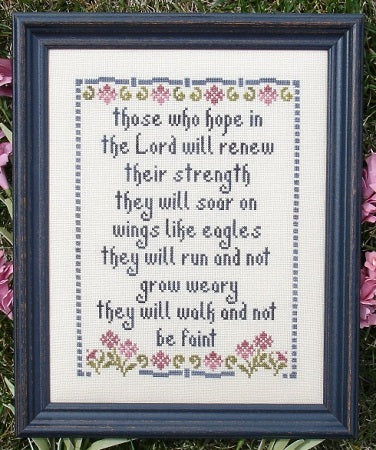 those who hope in
the Lord will renew
their strength
they will soar on
wings like eagles
they will run and not
grow weary
they will walk and not
be faint